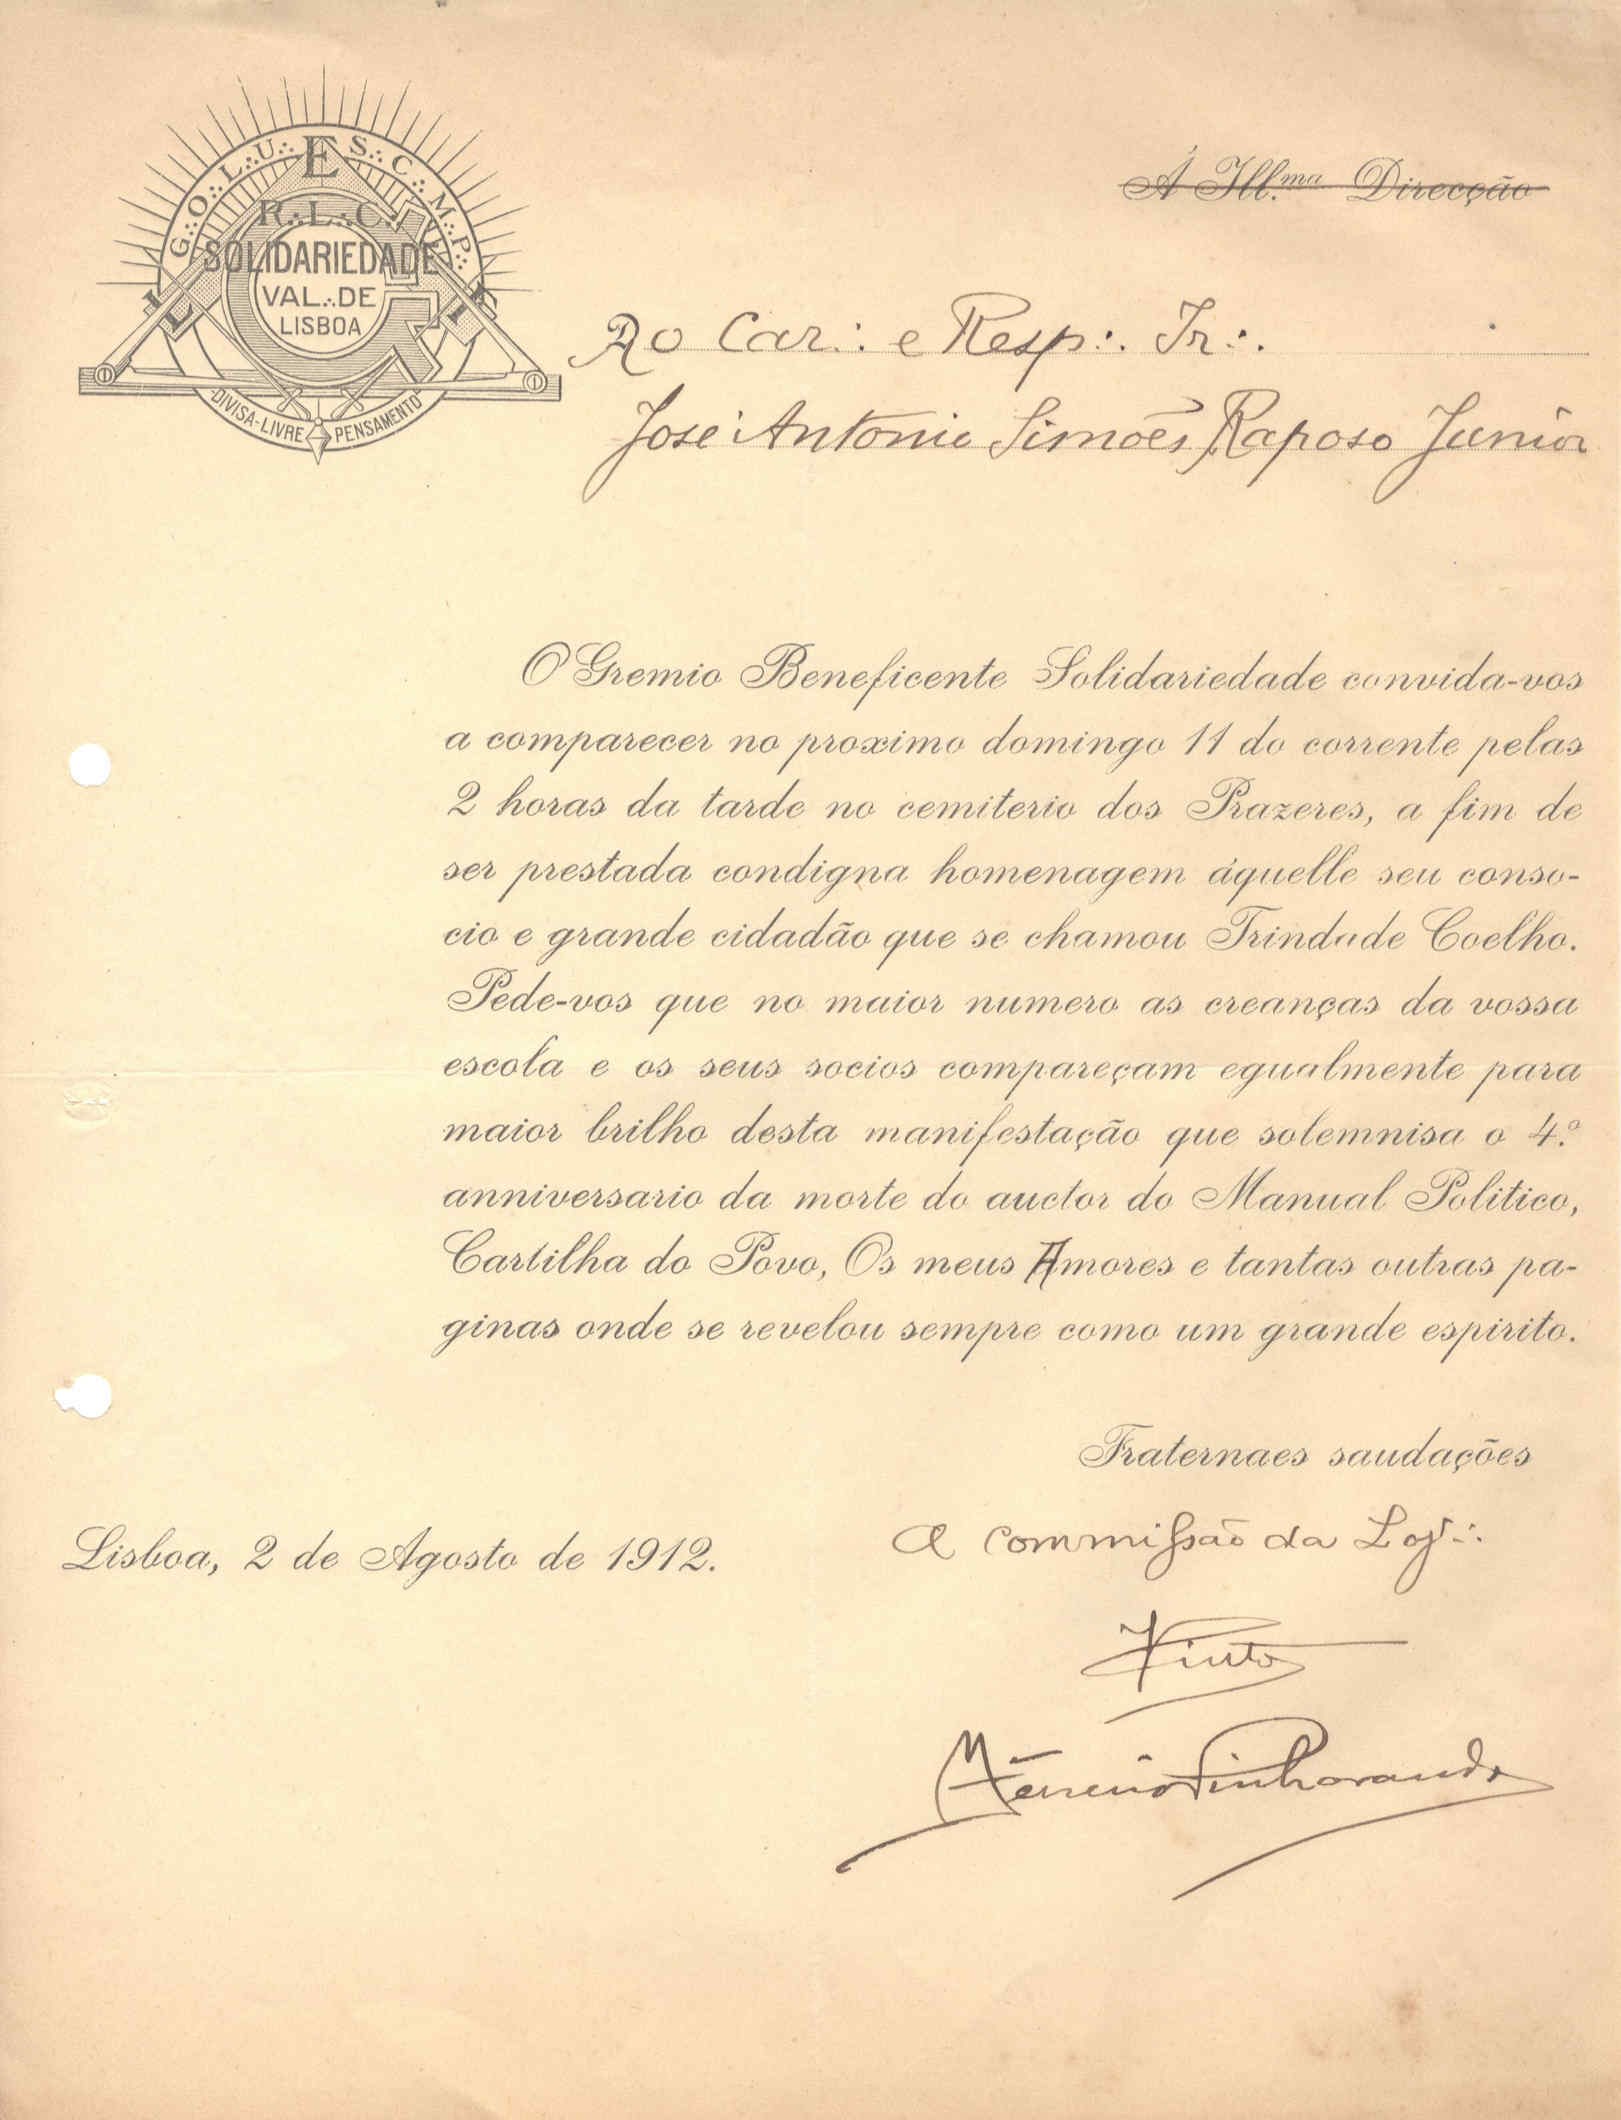 G∴O∴L∴U∴ E S∴C∴M∴P∴
R∴L∴C∴
SOLIDARIEDADE
VAL∴DE
LISBOA
L I
DIVISA-LIVRE PENSAMENTO
Á Ill.ma Direcção
Ao Car∴ e Resp∴ Ir∴
José Antonio Simões Raposo Junior
O Gremio Beneficente Solidariedade convida-vos
a comparecer no proximo domingo 11 do corrente pelas
2 horas da tarde no cemiterio dos Prazeres, a fim de
ser prestada condigna homenagem áquelle seu conso-
cio e grande cidadão que se chamou Trindade Coelho.
Pede-vos que no maior numero as creanças da vossa
escola e os seus socios compareçam egualmente para
maior brilho desta manifestação que solemnisa o 4.º
anniversario da morte do auctor do Manual Politico,
Cartilha do Povo, Os meus Amores e tantas outras pa-
ginas onde se revelou sempre como um grande espirito.
Fraternaes saudações
Lisboa, 2 de Agosto de 1912.
A commissão da Loj∴
Pinto